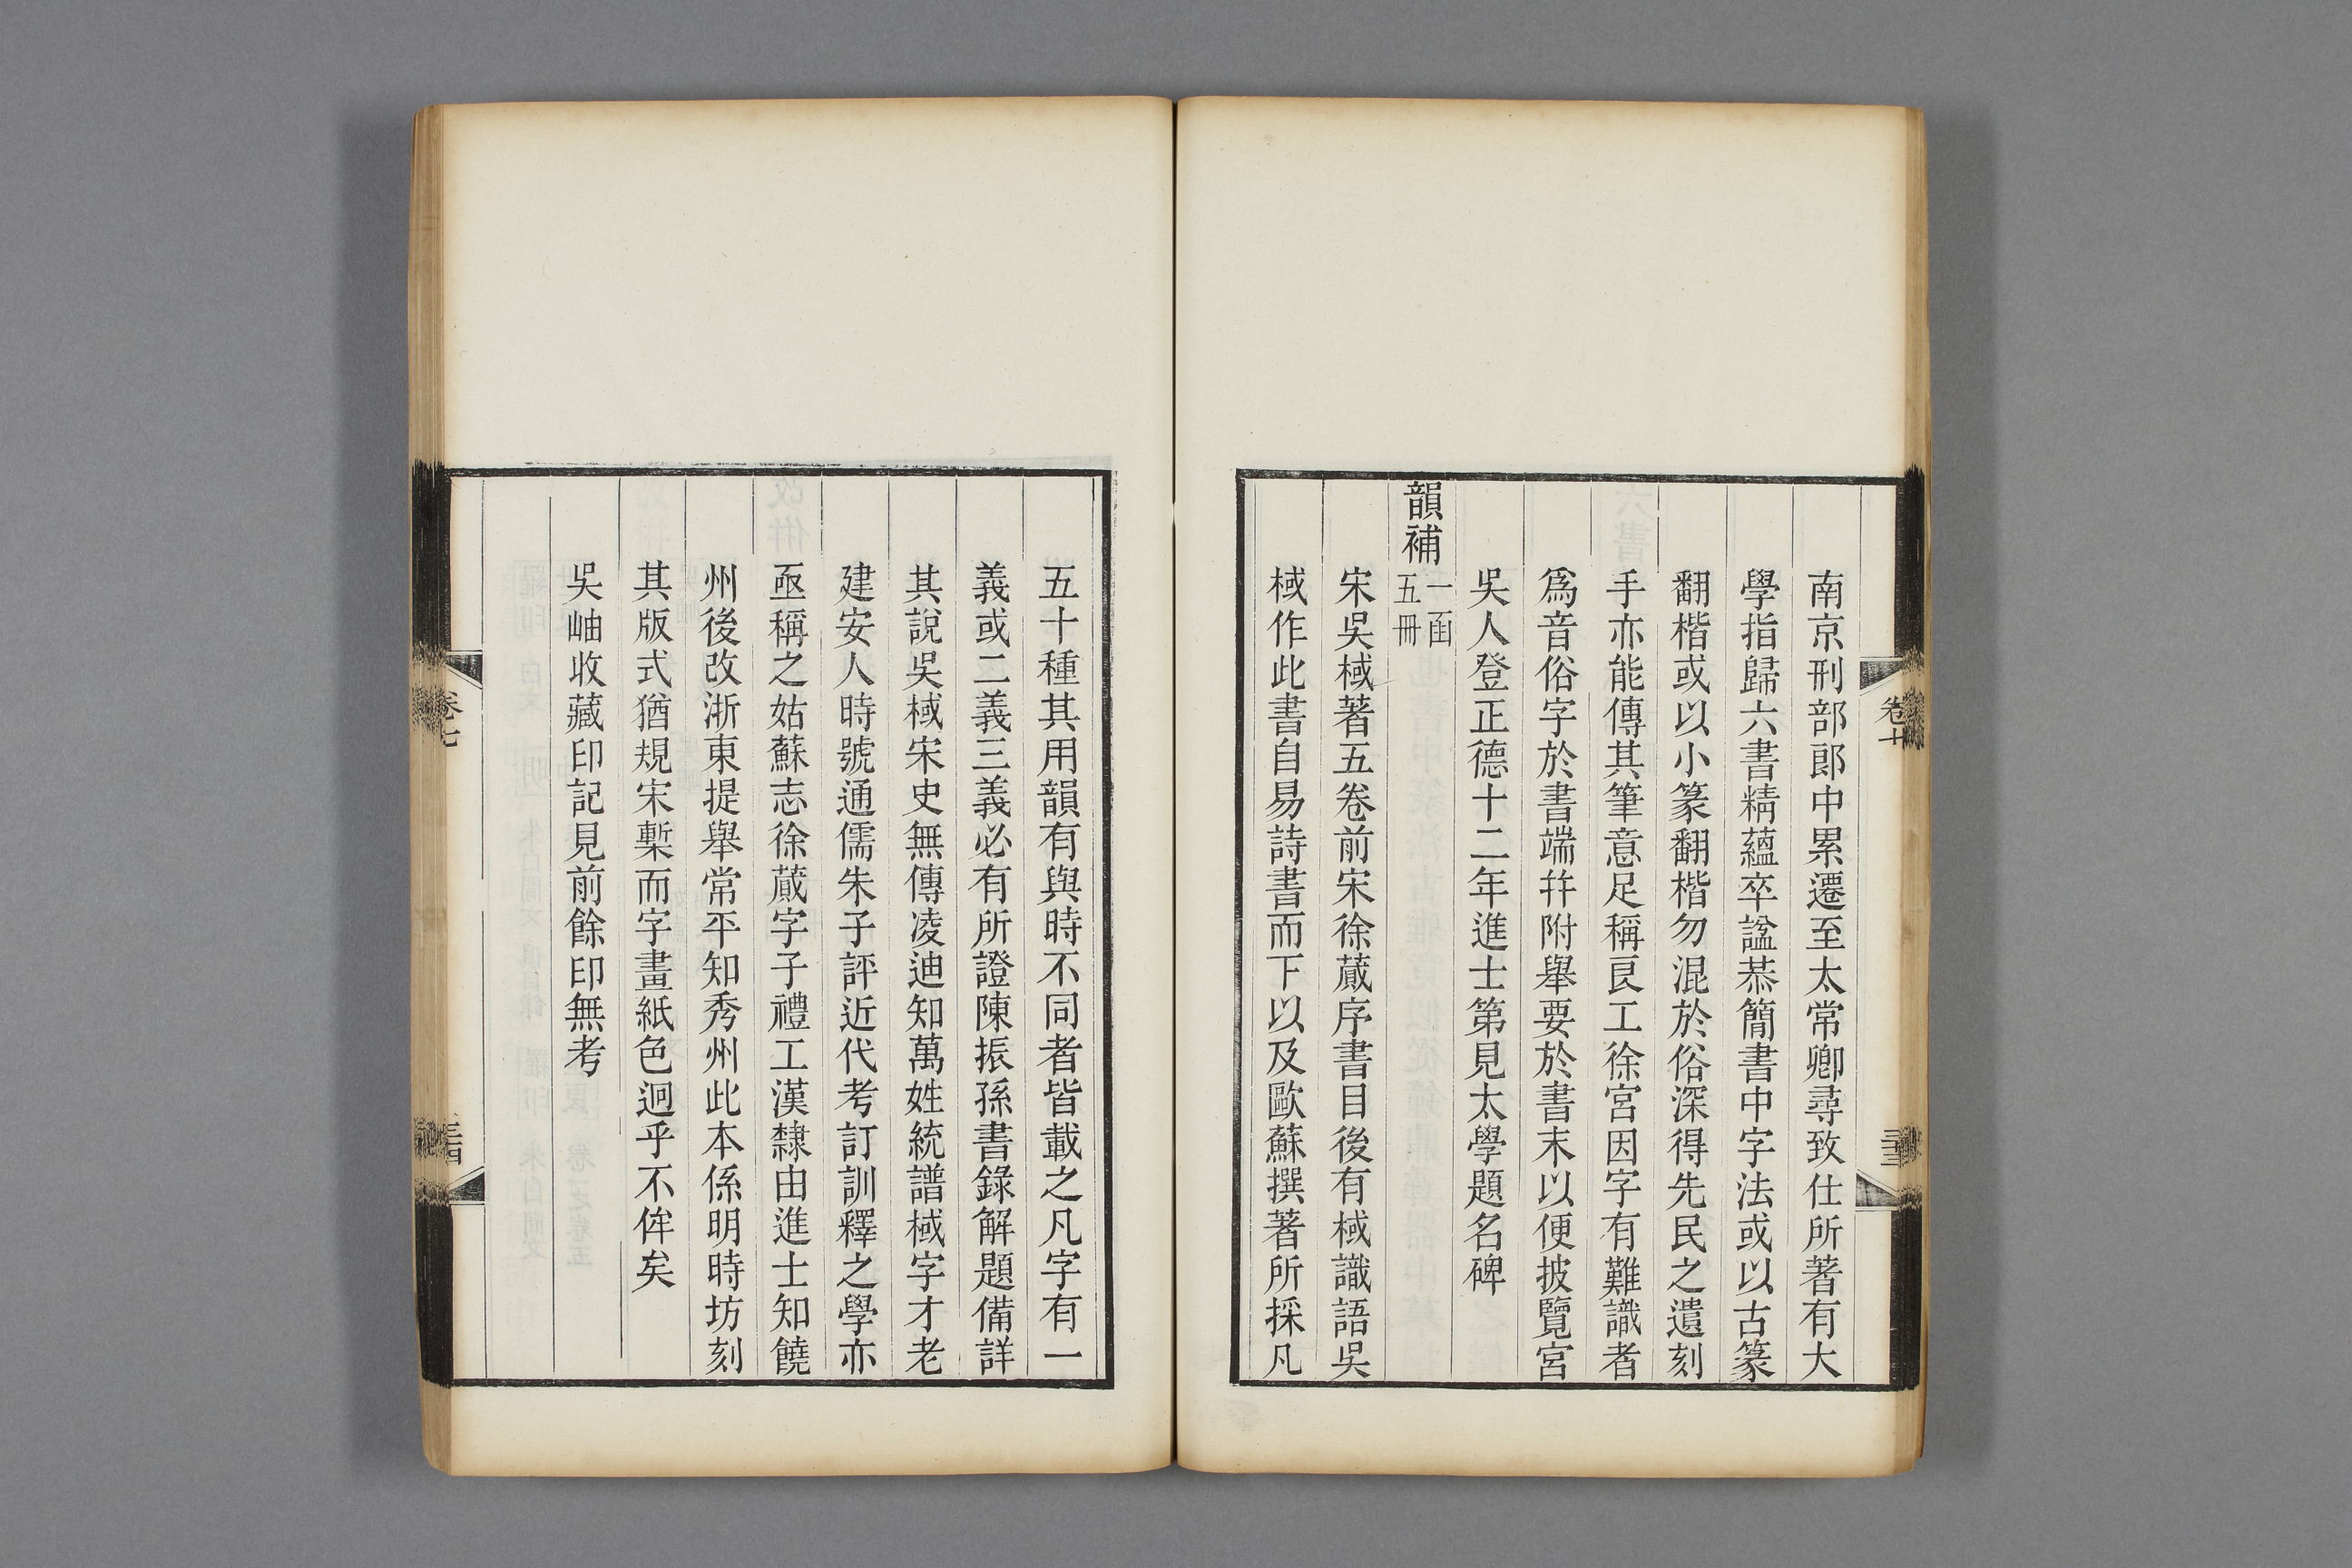 南京刑部郎中累遷至太常卿尋致仕所著有大
學指歸六書精蘊卒諡恭簡書中字法或以古篆
翻楷或以小篆翻楷勿混於俗深得先民之遺刻
手亦能傳其筆意足稱良工徐宮因字有難識者
爲音俗字於書端幷附舉要於書末以便披覽宮
吳人登正德十二年進士第見太學題名碑
韻補一函
五冊
宋吳棫著五卷前宋徐蕆序書目後有棫識語吳
棫作此書自易詩書而下以及歐蘇撰著所採凡
五十種其用韻有與時不同者皆載之凡字有一
義或二義三義必有所證陳振孫書錄解題備詳
其說吳棫宋史無傳凌迪知萬姓統譜棫字才老
建安人時號通儒朱子評近代考訂訓釋之學亦
亟稱之姑蘇志徐蕆字子禮工漢隸由進士知饒
州後改浙東提舉常平知秀州此本係明時坊刻
其版式猶規宋槧而字畫紙色迥乎不侔矣
吳岫收藏印記見前餘印無考
卷七
三十四